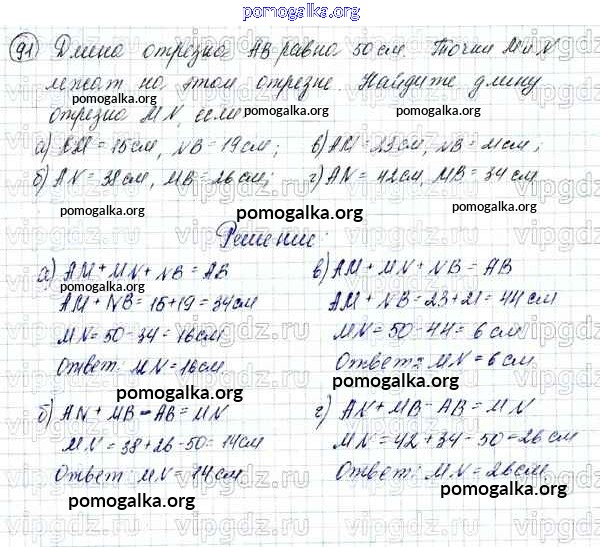 pomogalka.org
91) Длина отрезка AB равна 50 см. Точки M и N
лежат на этом отрезке. Найдите длину
pomogalka.org pomogalka.org
отрезка MN, если
а) AM = 15 см, NB = 19 см; в) AM = 23 см, NB = 21 см;
б) AN = 38 см, MB = 26 см; г) AN = 42 см, MB = 34 см
pomogalka.org pomogalka.org pomogalka.org
Решение:
а) AM + MN + NB = AB в) AM + MN + NB = AB
pomogalka.org pomogalka.org
AM + NB = 15 + 19 = 34 см AM + NB = 23 + 21 = 44 см
MN = 50 - 34 = 16 см MN = 50 - 44 = 6 см
Ответ: MN = 16 см Ответ: MN = 6 см.
pomogalka.org pomogalka.org
б) AN + MB - AB = MN г) AN + MB - AB = MN
MN = 38 + 26 - 50 = 14 см MN = 42 + 34 - 50 = 26 см
pomogalka.org
Ответ: MN = 14 см Ответ: MN = 26 см
pomogalka.org pomogalka.org